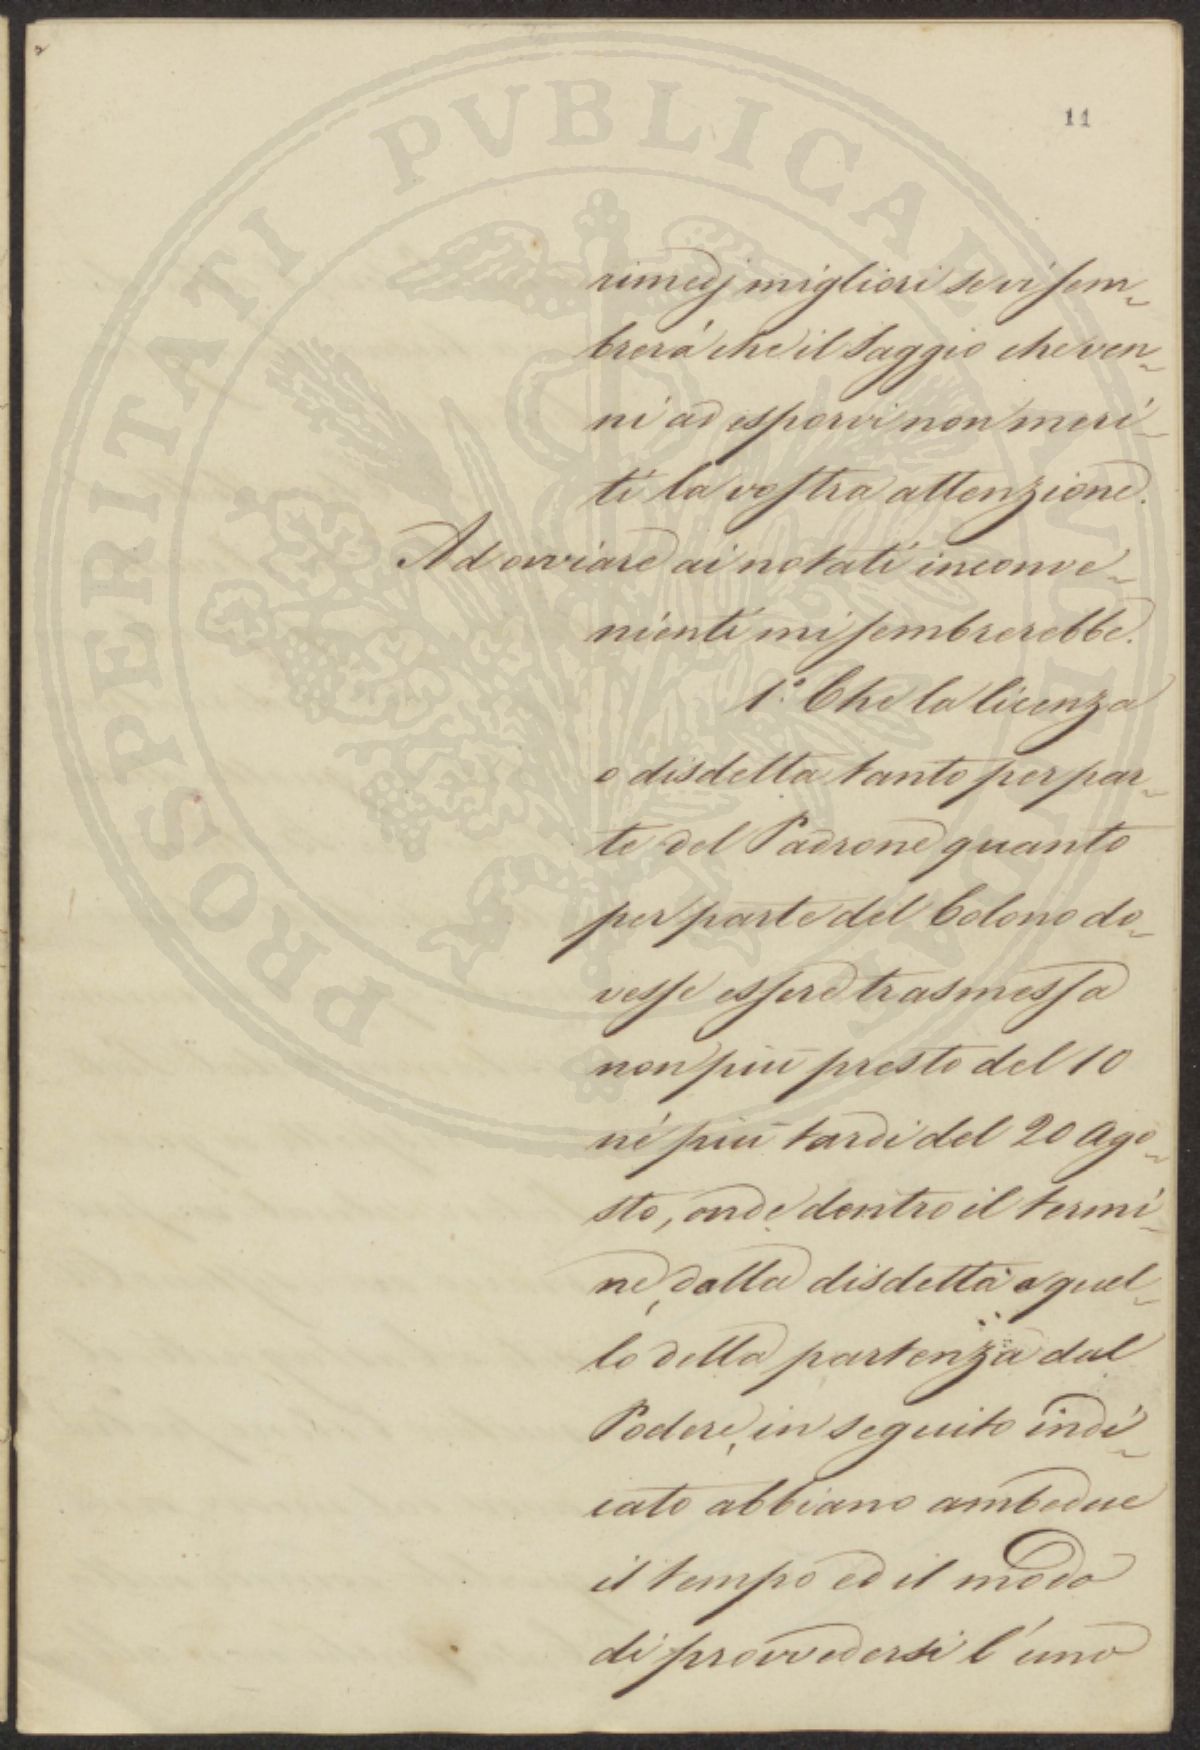 11
rimedj migliori se vi sem-
brerà che il saggio che ven-
ni ad esporvi non meri-
ti la vostra attenzione.
Ad ovviare ai notati inconve-
nienti mi sembrerebbe.
1.° Che la licenza
o disdetta tanto per par-
te del Padrone quanto
per parte del Colono do-
vesse essere trasmessa
non più presto del 10
nè più tardi del 20 Ago-
sto, onde dentro il termi-
ne, dalla disdetta a quel-
lo della partenza dal
Podere, in seguito indi-
cato abbiano ambedue
il tempo ed il modo
di provvedersi l'uno
PROSPERITATI PVBLICAE AVGENDAE